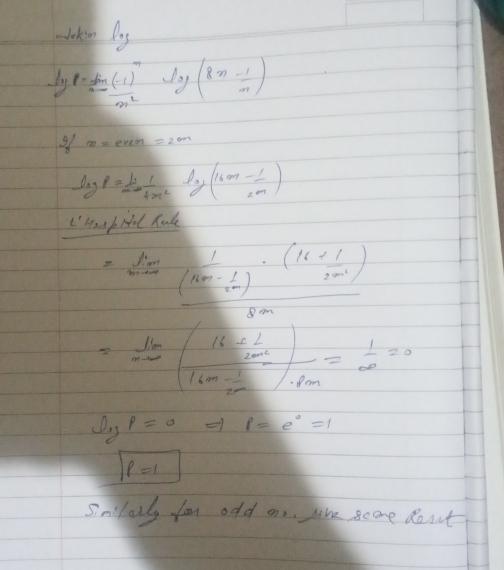 Takin log
log P = lim (-1)^n / n² log (8n - 1/n)
If n = even = 2m
log P = lim 1/4m² log (16m - 1/2m)
L'Hospital Rule
= lim m→∞ 1/(16m - 1/2m) · (16 + 1/2m²) / 8m
= lim m→∞ (16 + 1/2m²) / (16m - 1/2m) · 8m = 1/∞ = 0
log P = 0 ⇒ P = e⁰ = 1
P = 1
Similarly for odd no. give same Result